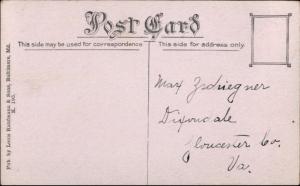 Post Card
This side may be used for correspondence
This side for address only.
Max Zschiegner
Dixondale
Gloucester Co.
Va.
Pub. by Louis Kaufmann & Sons, Baltimore, Md.